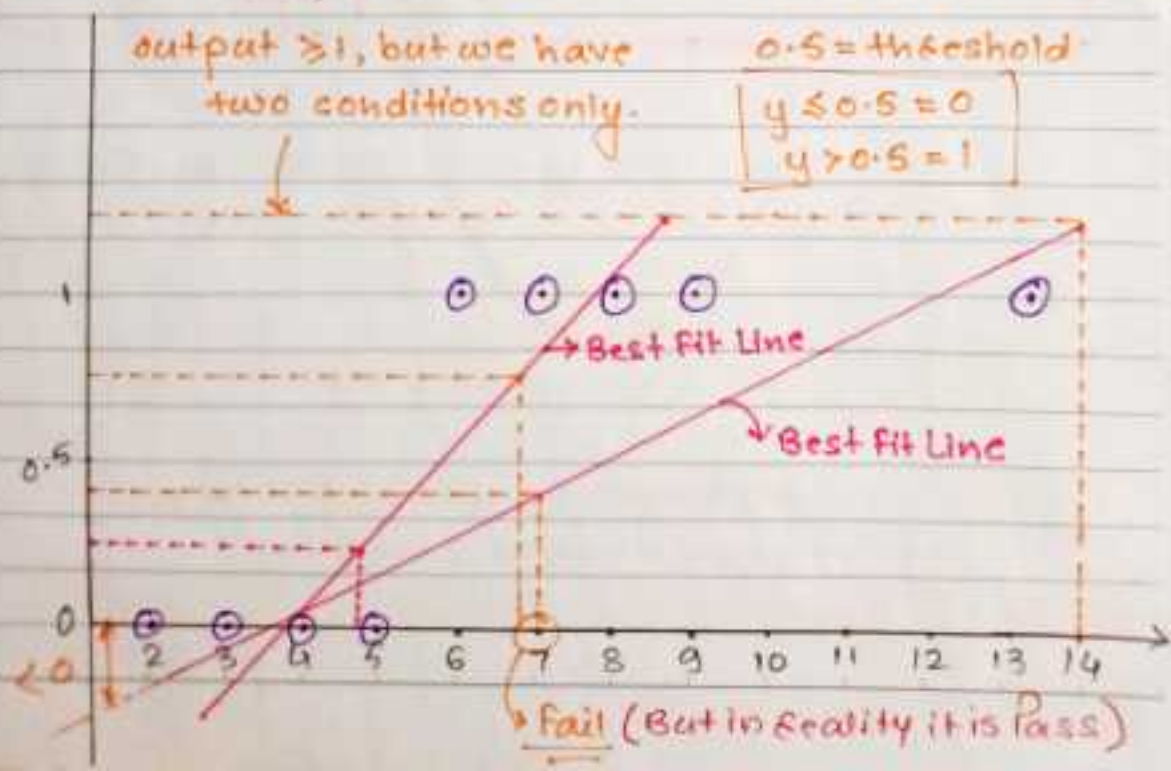 output ≥1, but we have
two conditions only.
0.5 = threshold
y ≤ 0.5 = 0
y > 0.5 = 1
1
→ Best Fit Line
0.5
Best Fit Line
0
2 3 4 5 6 7 8 9 10 11 12 13 14
<0
Fail (But in reality it is Pass)